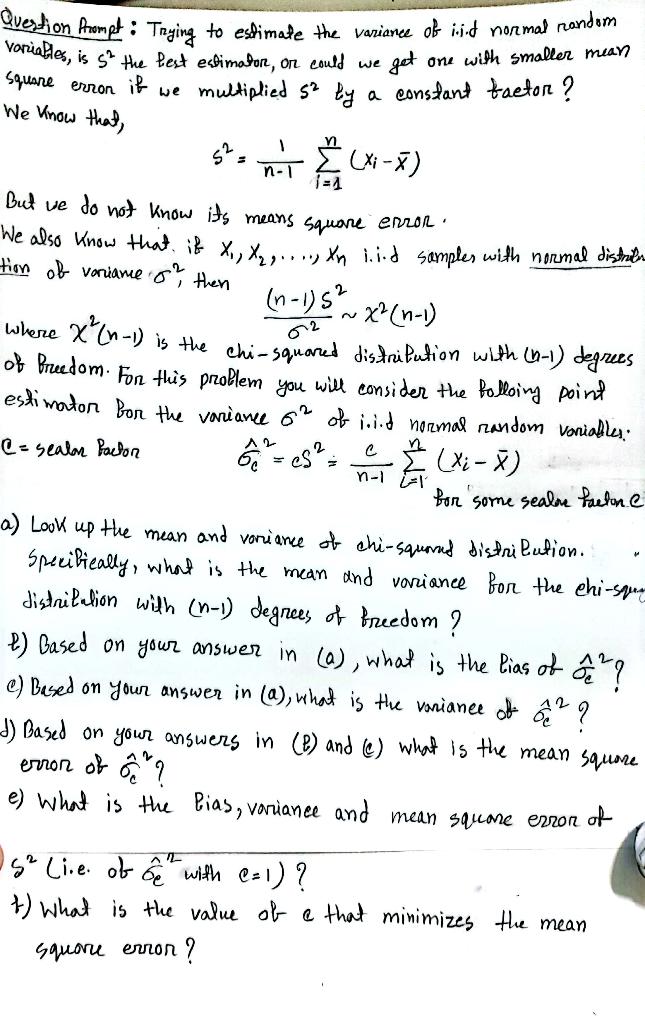 Question Prompt : Trying to estimate the variance of i.i.d normal random
variables, is S² the best estimator, or could we get one with smaller mean
square error if we multiplied S² by a constant factor ?
We Know that,
S² = 1/(n-1) Σ_{i=1}^{n} (Xi - X̄)
But we do not know its means square error.
We also Know that. if X₁, X₂, ...., Xn i.i.d samples with normal distribu
tion of variance σ², then
(n-1)S²/σ² ~ X²(n-1)
where X²(n-1) is the chi-squared distribution with (n-1) degrees
of freedom. For this problem you will consider the folloing point
estimator for the variance σ² of i.i.d normal random variables.
C = scalar factor σ̂c² = cS² = c/(n-1) Σ_{i=1}^{n} (Xi - X̄)
for some scalar factor c
a) Look up the mean and variance of chi-squared distribution.
Specifically, what is the mean and variance for the chi-squ
distribution with (n-1) degrees of freedom ?
b) Based on your answer in (a), what is the bias of σ̂c² ?
c) Based on your answer in (a), what is the variance of σ̂c² ?
d) Based on your answers in (b) and (c) what is the mean square
error of σ̂c² ?
e) What is the bias, variance and mean square error of
S² (i.e. of σ̂c² with c=1) ?
f) What is the value of c that minimizes the mean
square error ?